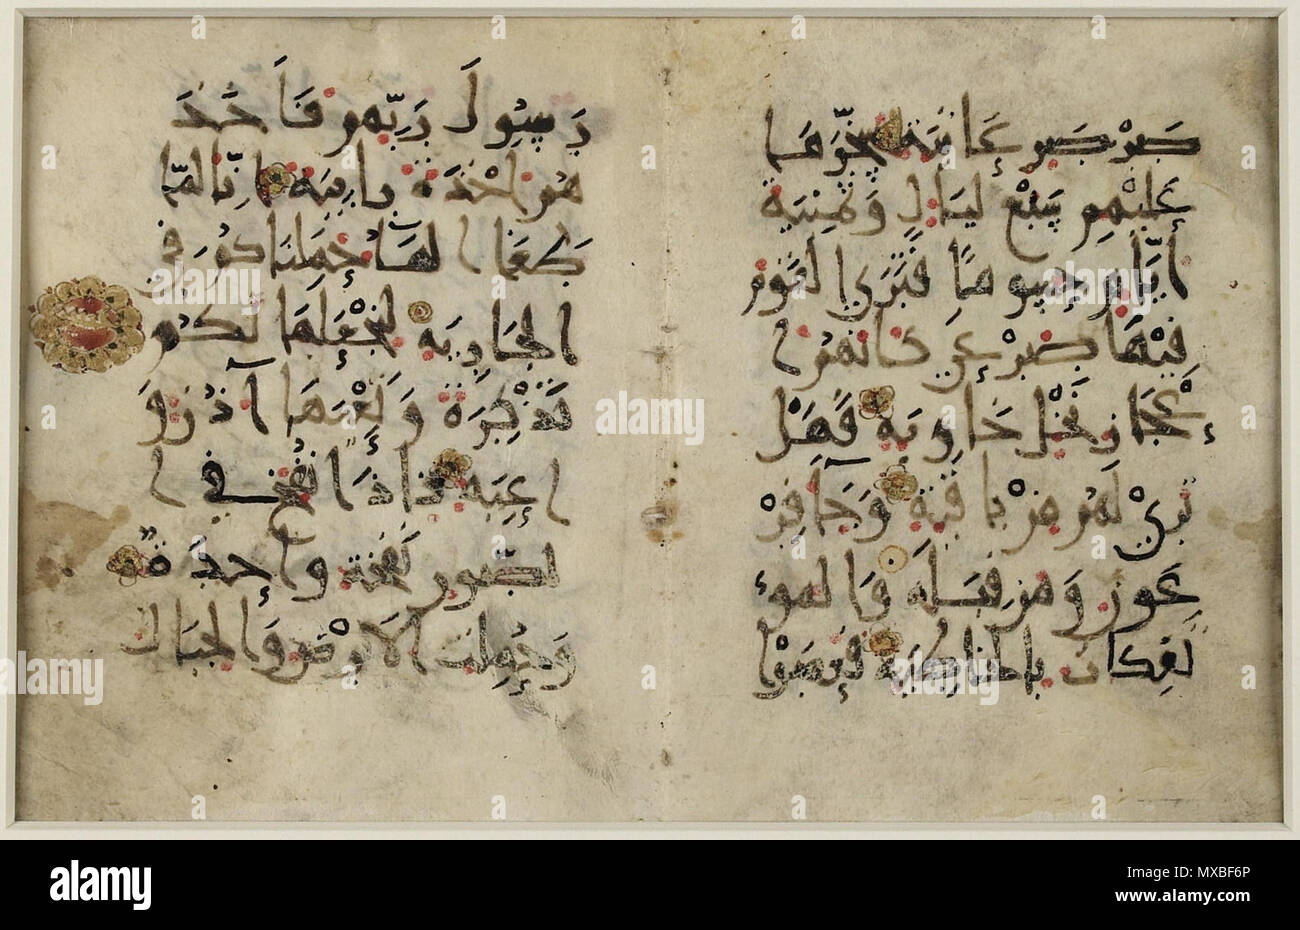 صَرْصَرٍ عَاتِيَةٍ سَخَّرَهَا
عَلَيْهِمْ سَبْعَ لَيَالٍ وَثَمٰنِيَةَ
أَيَّامٍ حُسُومًا فَتَرَى الْقَوْمَ
فِيهَا صَرْعَى كَأَنَّهُمْ أَ
عْجَازُ نَخْلٍ خَاوِيَةٍ فَهَلْ
تَرَى لَهُمْ مِنْ بَاقِيَةٍ وَجَآءَ فِرْ
عَوْنُ وَمَنْ قَبْلَهُ وَالْمُؤْ
تَفِكَاتُ بِالْخَاطِئَةِ فَعَصَوْا
رَسُولَ رَبِّهِمْ فَأَخَذَ
هُمْ أَخْذَةً رَابِيَةً إِنَّا لَمَّا
طَغَا الْمَآءُ حَمَلْنَاكُمْ فِي
الْجَارِيَةِ لِنَجْعَلَهَا لَكُمْ
تَذْكِرَةً وَتَعِيَهَا أُذُنٌ وَ
اعِيَةٌ فَإِذَا نُفِخَ فِي ا
لصُّورِ نَفْخَةٌ وَاحِدَةٌ
وَحُمِلَتِ الْأَرْضُ وَالْجِبَالُ
alamy
alamy
Image ID: MXBF6P
www.alamy.com